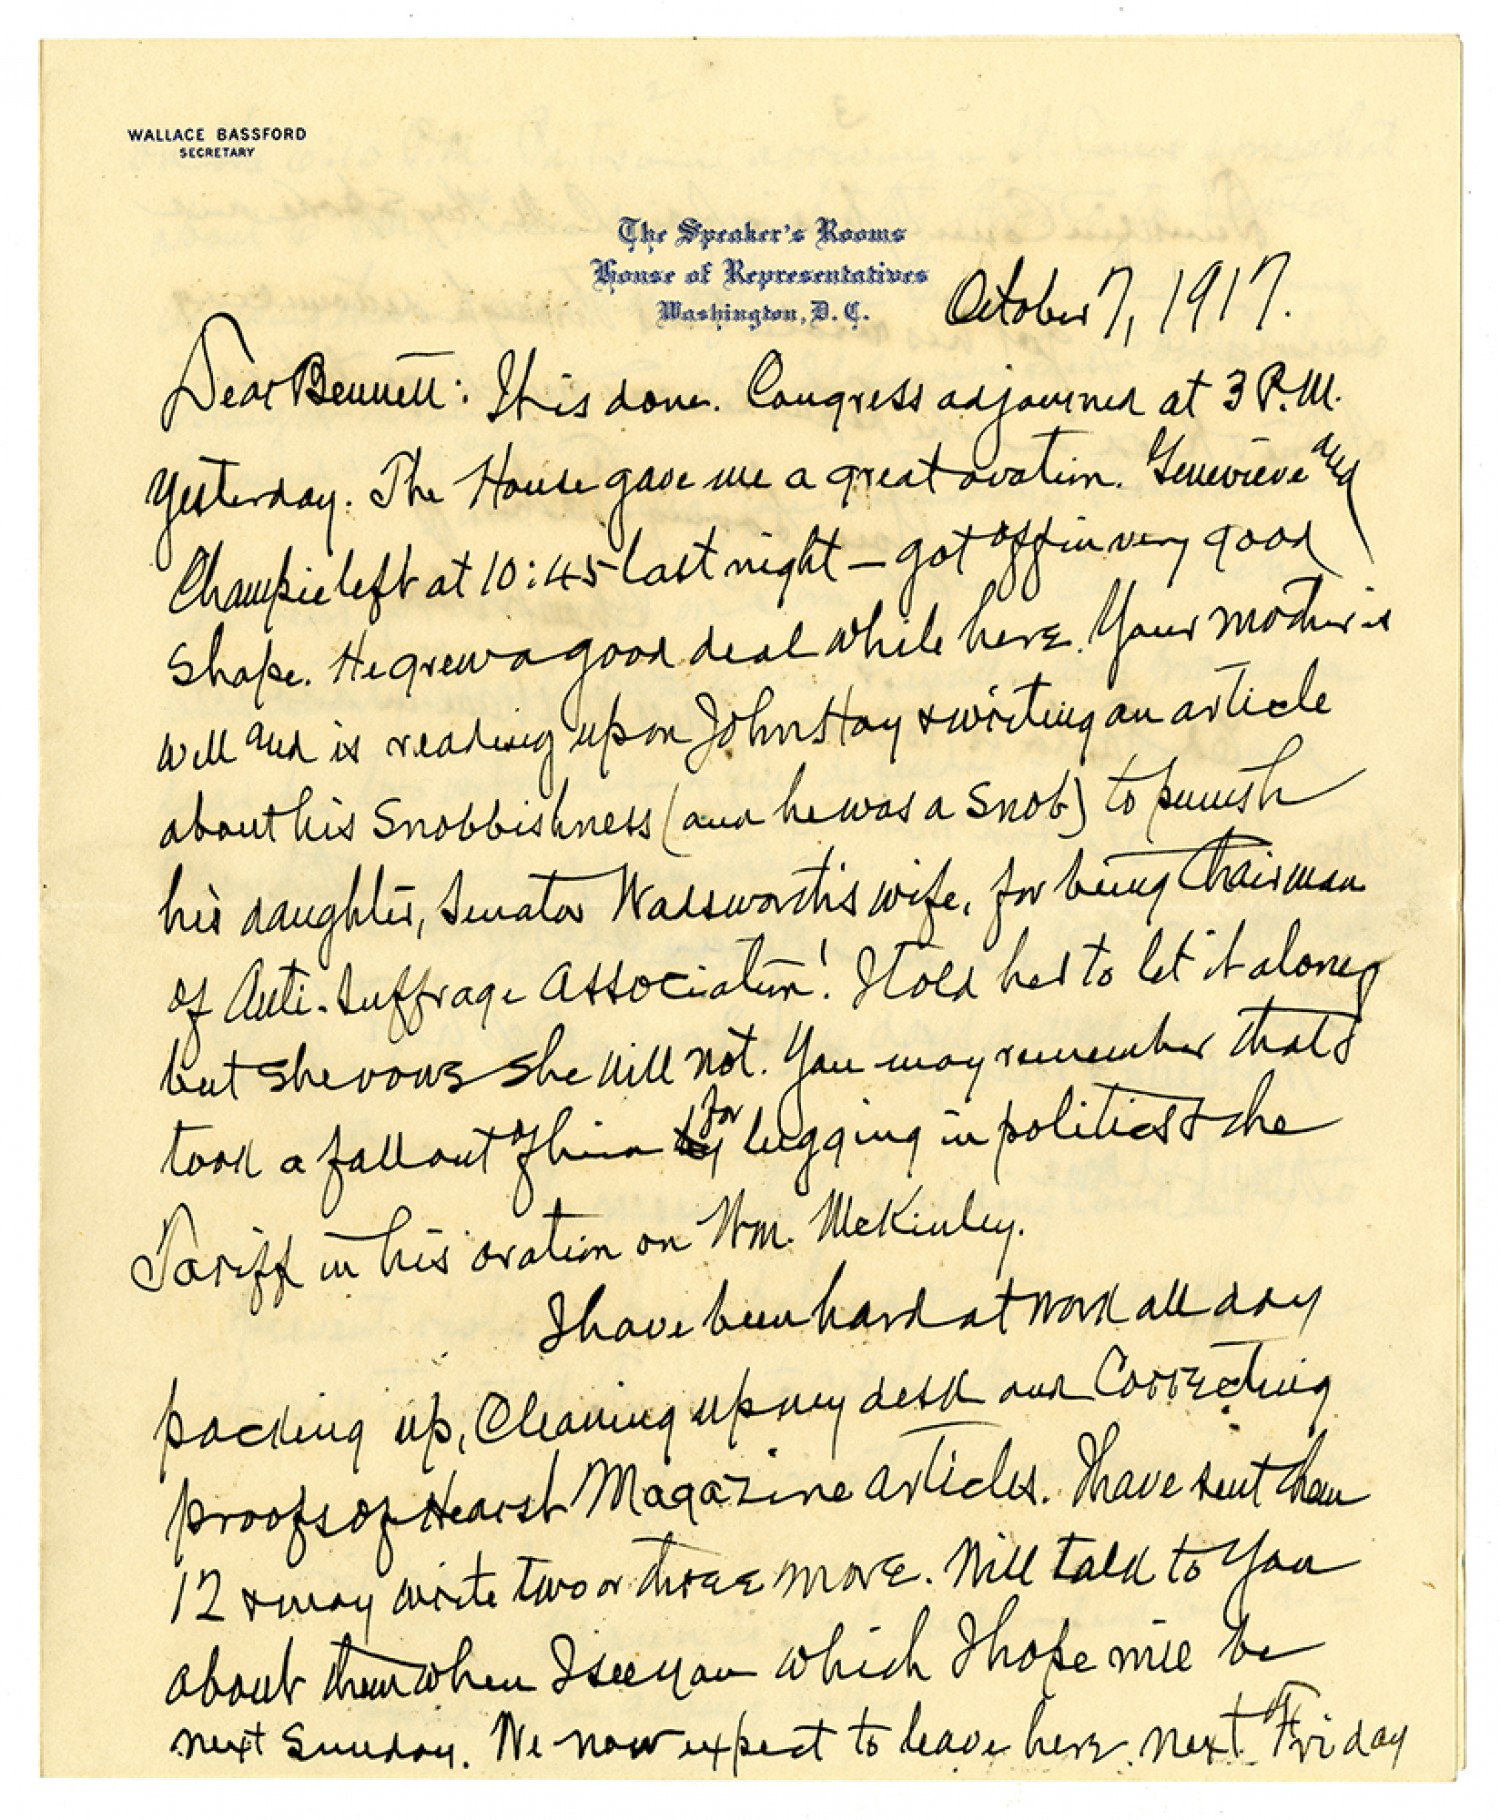 WALLACE BASSFORD
SECRETARY
The Speaker's Rooms
House of Representatives
Washington, D. C.
October 7, 1917.
Dear Bennett: It is done. Congress adjourned at 3 P.M.
yesterday. The House gave me a great ovation. Genevieve and
Champie left at 10:45 last night – got off in very good
shape. He grew a good deal while here. Your mother is
well and is reading up on John Hay & writing an article
about his Snobbishness (and he was a Snob) to punish
his daughter, Senator Wadsworth's wife, for being Chairman
of Anti-Suffrage Association! I told her to let it alone,
but she vows she will not. You may remember that I
took a fall out of him for lugging in politics & the
Tariff in his oration on Wm. McKinley.
I have been hard at work all day
packing up, Cleaning up my desk and Correcting
proofs of Hearst Magazine articles. I have sent them
12 & may write two or three more. Will talk to You
about them when I see you which I hope will be
next Sunday. We now expect to leave here next Friday